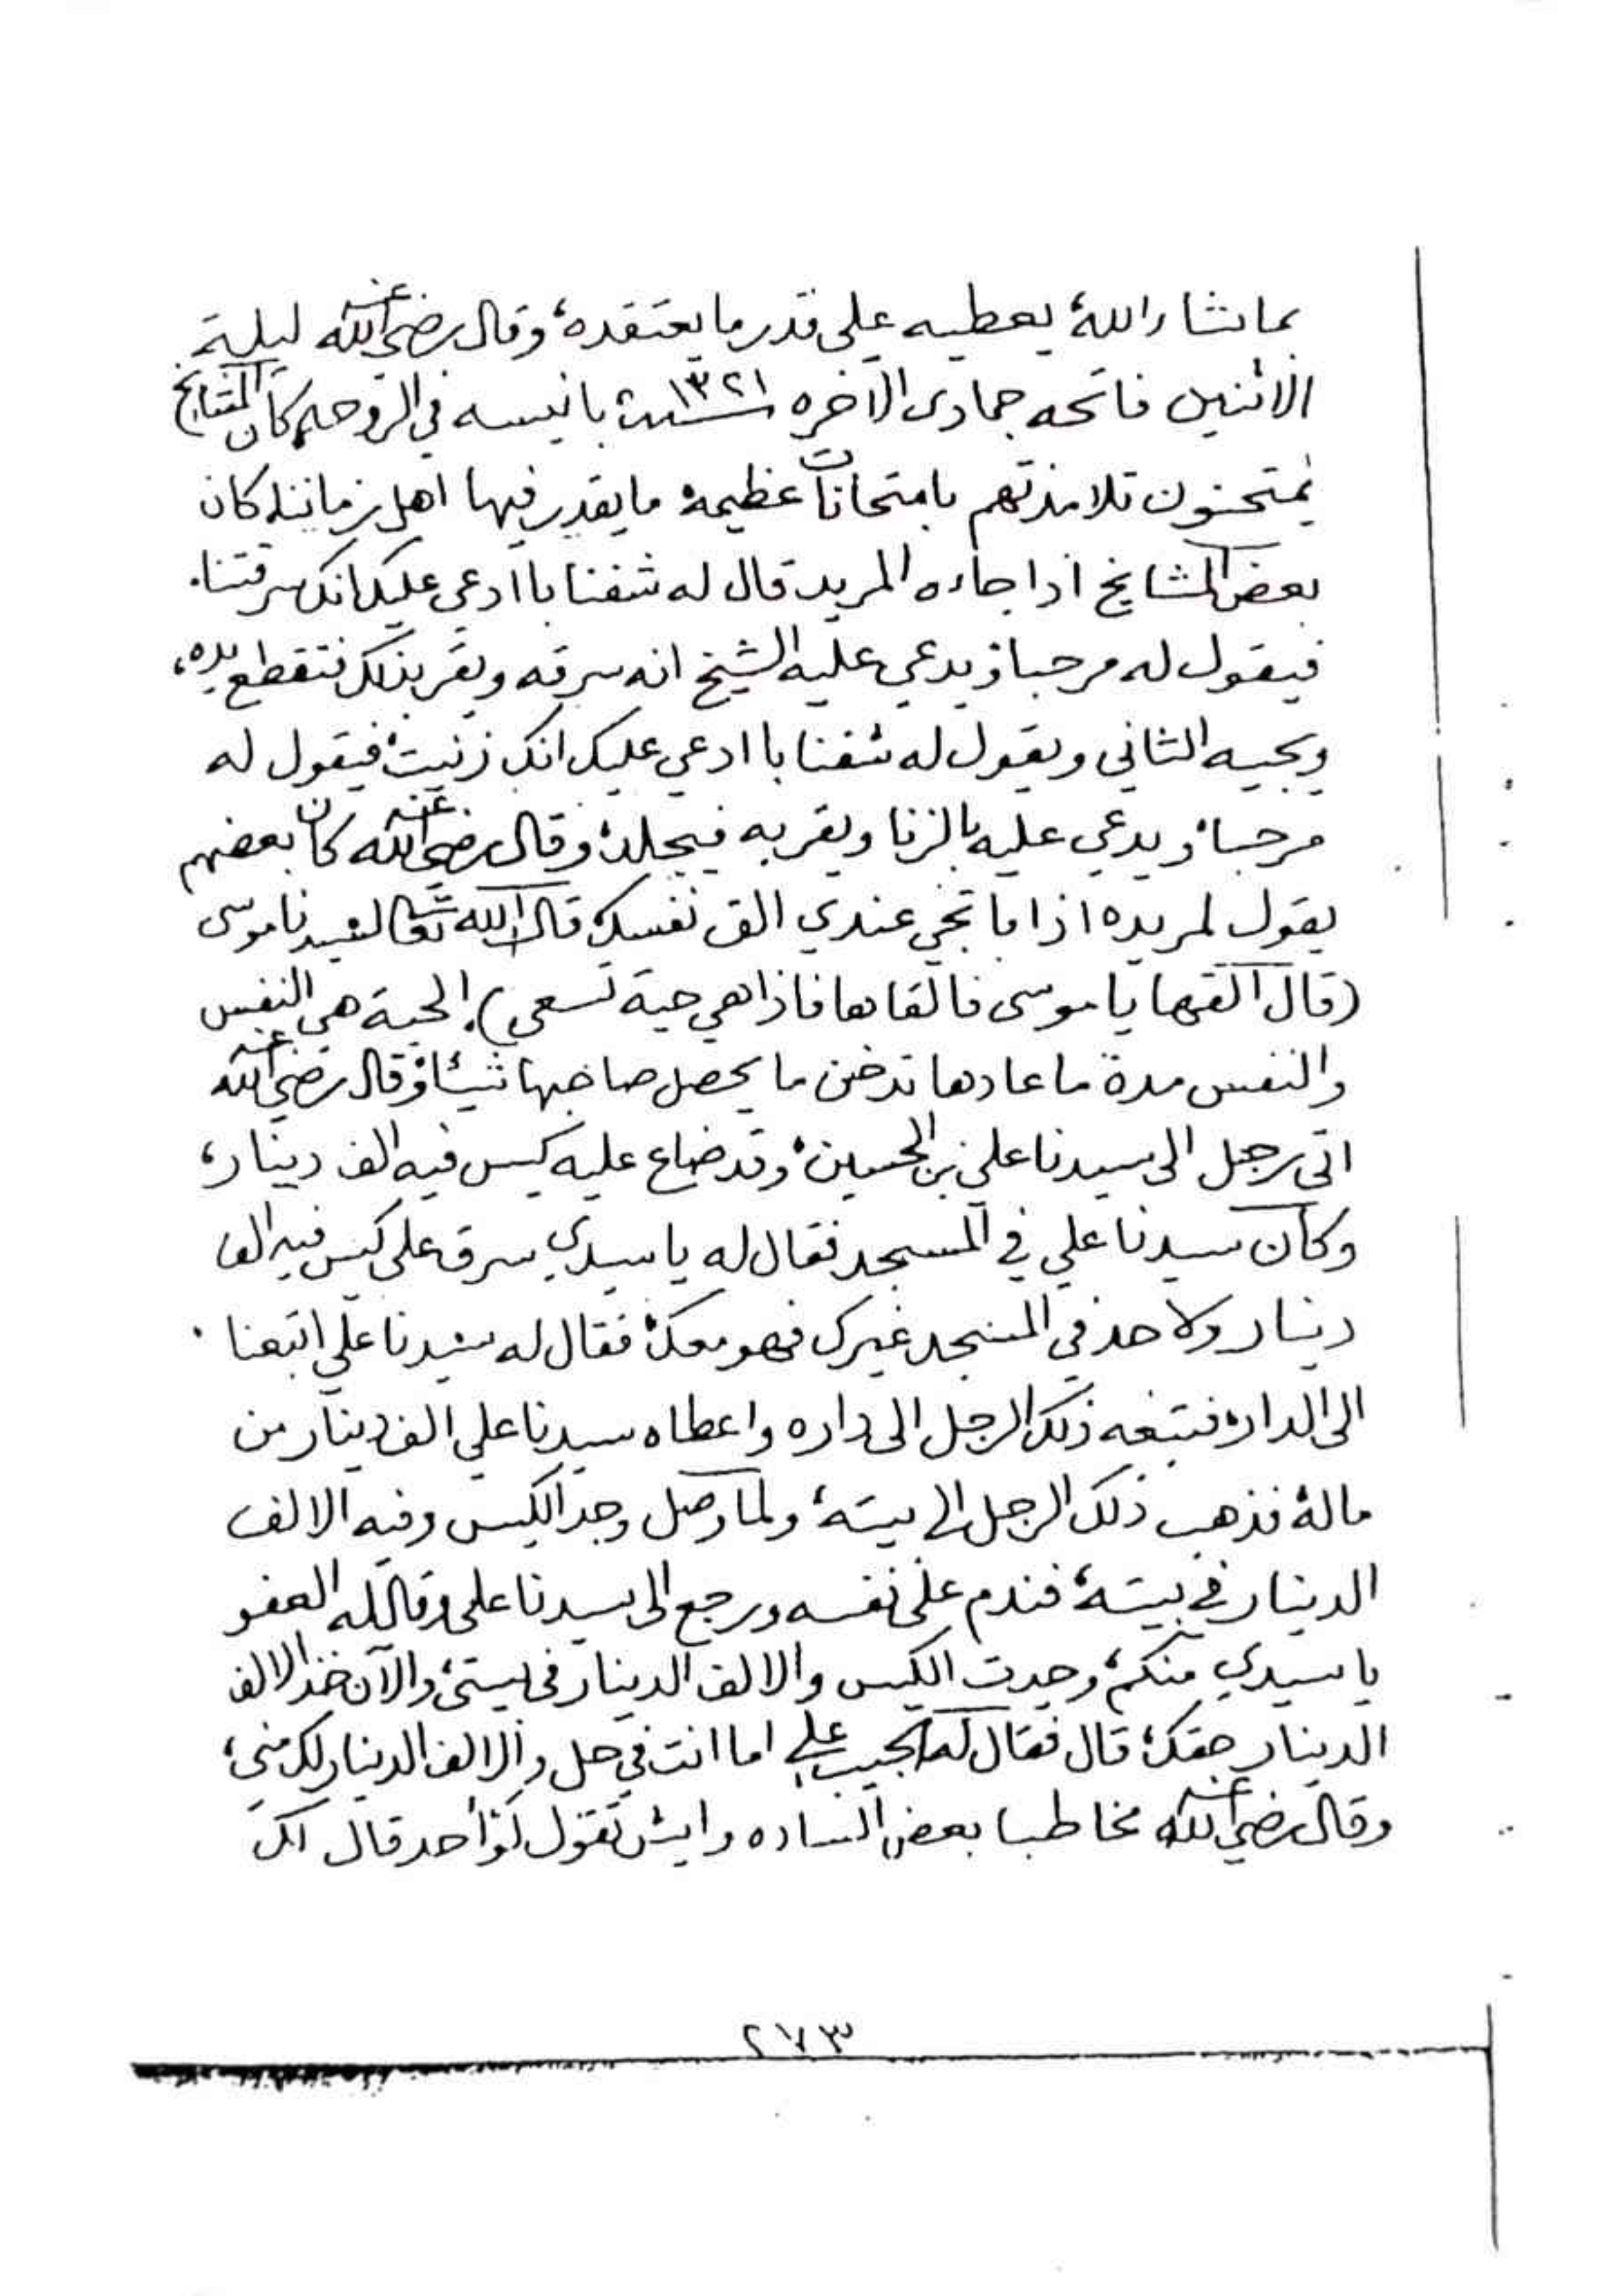 بما شاء الله يعطيه على قدر ما يعتقده، وقال رضي الله عنه ليلة
الاثنين فاتحه جمادى الآخره سنة ١٣٢١ بانيسه في الروحه كان المشايخ
يمتحنون تلامذتهم بامتحانات عظيمه ما يقدر فيها اهل زماننا، كان
بعض المشايخ اذا جاءه المريد قال له شفنا با ادعي عليك انك سرقتنا.
فيقول له مرحبا، ويدعي عليه الشيخ انه سرقه ويقر بذلك فتقطع يده،
ويجيه الثاني ويقول له شفنا با ادعي عليك انك زنيت، فيقول له
مرحبا، ويدعي عليه بالزنا ويقر به فيجلد، وقال رضي الله عنه كان بعضهم
يقول لمريده اذا با تجي عندي الق نفسك، قال الله تعالى لسيدنا موسى
(قال القها يا موسى فالقاها فاذا هي حية تسعى). الحية هي النفس
والنفس مدة ما عادها تدخن ما يحصل صاحبها شيئا، وقال رضي الله عنه
اتى رجل الى سيدنا علي بن الحسين، وقد ضاع عليه كيس فيه الف دينار،
وكان سيدنا علي في المسجد فقال له يا سيدي سرق علي كيس فيه الف
دينار ولا حد في المسجد غيرك فهو معك، فقال له سيدنا علي اتبعنا
الى الدار، فتبعه ذلك الرجل الى داره واعطاه سيدنا علي الف دينار من
ماله، فذهب ذلك الرجل الى بيته، ولما وصل وجد الكيس وفيه الالف
الدينار في بيته، فندم على نفسه ورجع الى سيدنا علي وقال له العفو
يا سيدي منكم، وجدت الكيس والالف الدينار في بيتي، والآن خذ الالف
الدينار حقك، قال فقال له الحبيب علي اما انت في حل والالف الدينار لك مني،
وقال رضي الله عنه مخاطبا بعض الساده وايش تقول لو احد قال لك
٢٧٣